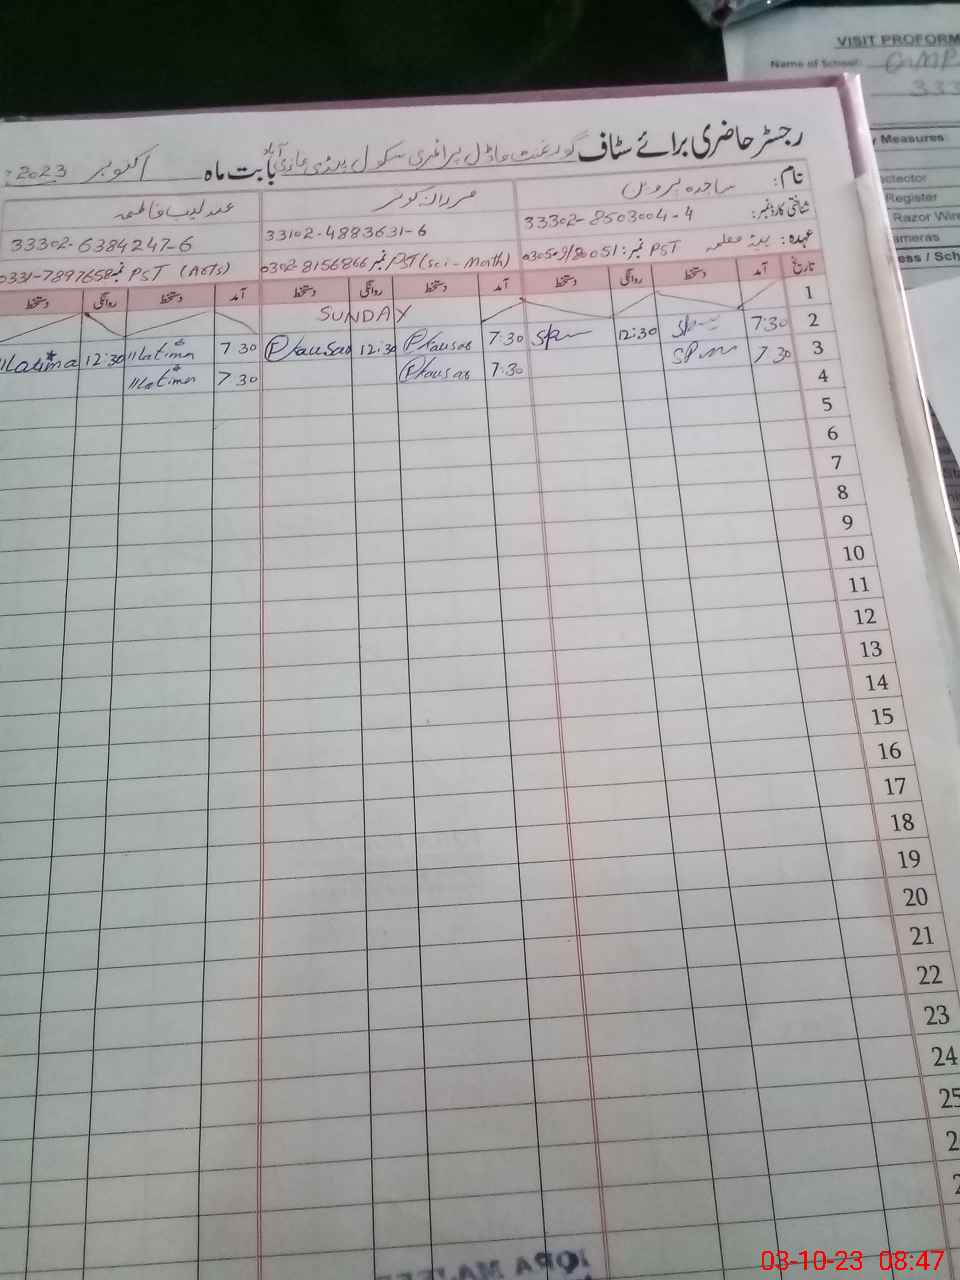 VISIT PROFORM
Name of School: GMP
333
رجسٹر حاضری برائے سٹاف گورنمنٹ ماڈل پرائمری سکول پنڈی غازی آباد بابت ماہ اکتوبر 2023
نام: ساجدہ پروین
عندلیب فاطمہ
شناختی کارڈ نمبر: 33302-8503004-4
33102-4883631-6
33302-6384247-6
عہدہ: ہیڈ معلمہ PST نمبر:
0302-8156866 نمبر PST (Sci-Math)
0331-7897658 نمبر PST (Arts)
تاریخ آمد دستخط روانگی دستخط آمد دستخط روانگی دستخط آمد دستخط روانگی دستخط
1 SUNDAY
2 7:30 12:30 7:30 Pkausar 12:30 Pkausar 7 30 12:30
3 7 30 7:30 Pkausar 7 30
4
5
6
7
8
9
10
11
12
13
14
15
16
17
18
19
20
21
22
23
24
25
y Measures
Register
Razor Wire
ameras
ess / Sch
03-10-23 08:47